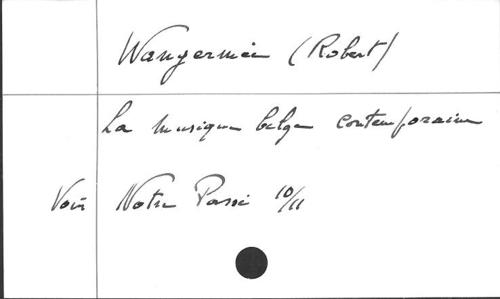 Wangermée (Robert)
La musique belge contemporaine
Voir Notre Passé 10/11